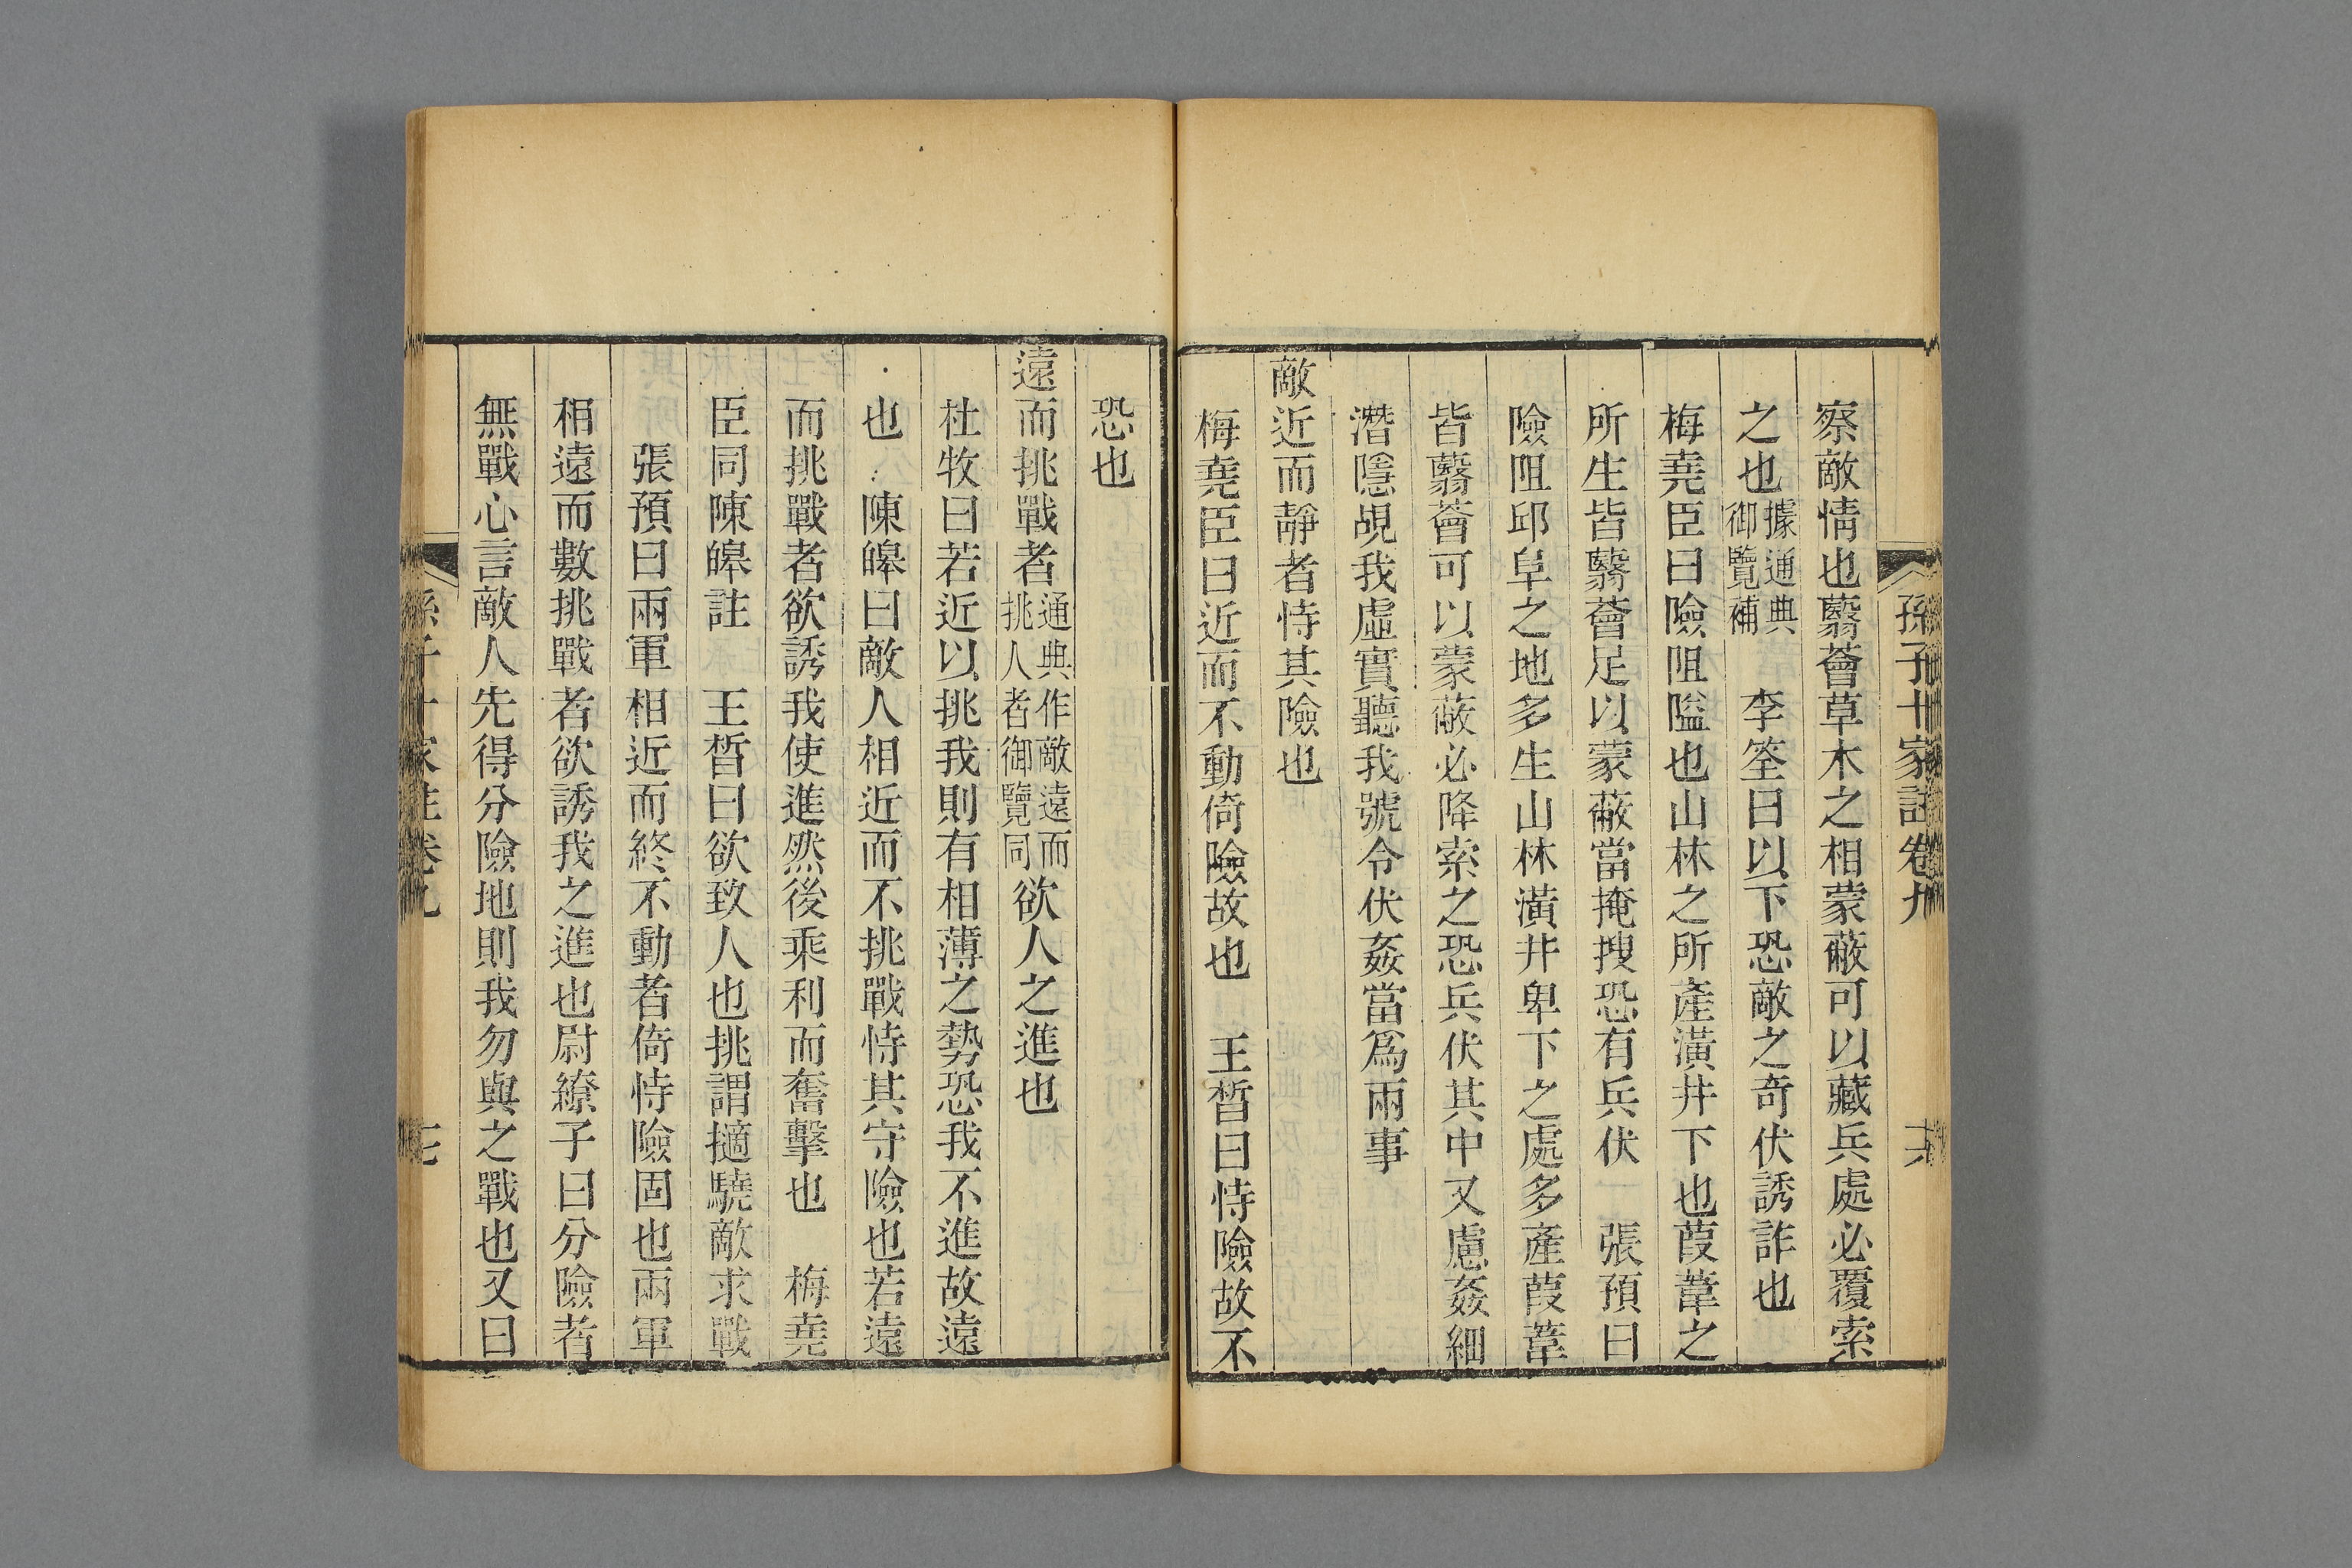 孫子十家註卷九 十六
察敵情也蘙薈草木之相蒙蔽可以藏兵處必覆索
之也據通典御覽補 李筌曰以下恐敵之奇伏誘詐也
梅堯臣曰險阻隘也山林之所產潢井下也葭葦之
所生皆蘙薈足以蒙蔽當掩搜恐有兵伏 張預曰
險阻邱阜之地多生山林潢井卑下之處多產葭葦
皆蘙薈可以蒙蔽必降索之恐兵伏其中又慮姦細
潛隱覘我虛實聽我號令伏姦當爲兩事
敵近而靜者恃其險也
梅堯臣曰近而不動倚險故也 王晳曰恃險故不
恐也
遠而挑戰者通典作敵遠而挑人者御覽同欲人之進也
杜牧曰若近以挑我則有相薄之勢恐我不進故遠
也 陳皥曰敵人相近而不挑戰恃其守險也若遠
而挑戰者欲誘我使進然後乘利而奮擊也 梅堯
臣同陳皥註 王晳曰欲致人也挑謂擿驍敵求戰
張預曰兩軍相近而終不動者倚恃險固也兩軍
相遠而數挑戰者欲誘我之進也尉繚子曰分險者
無戰心言敵人先得分險地則我勿與之戰也又曰
孫子十家註卷九 十七